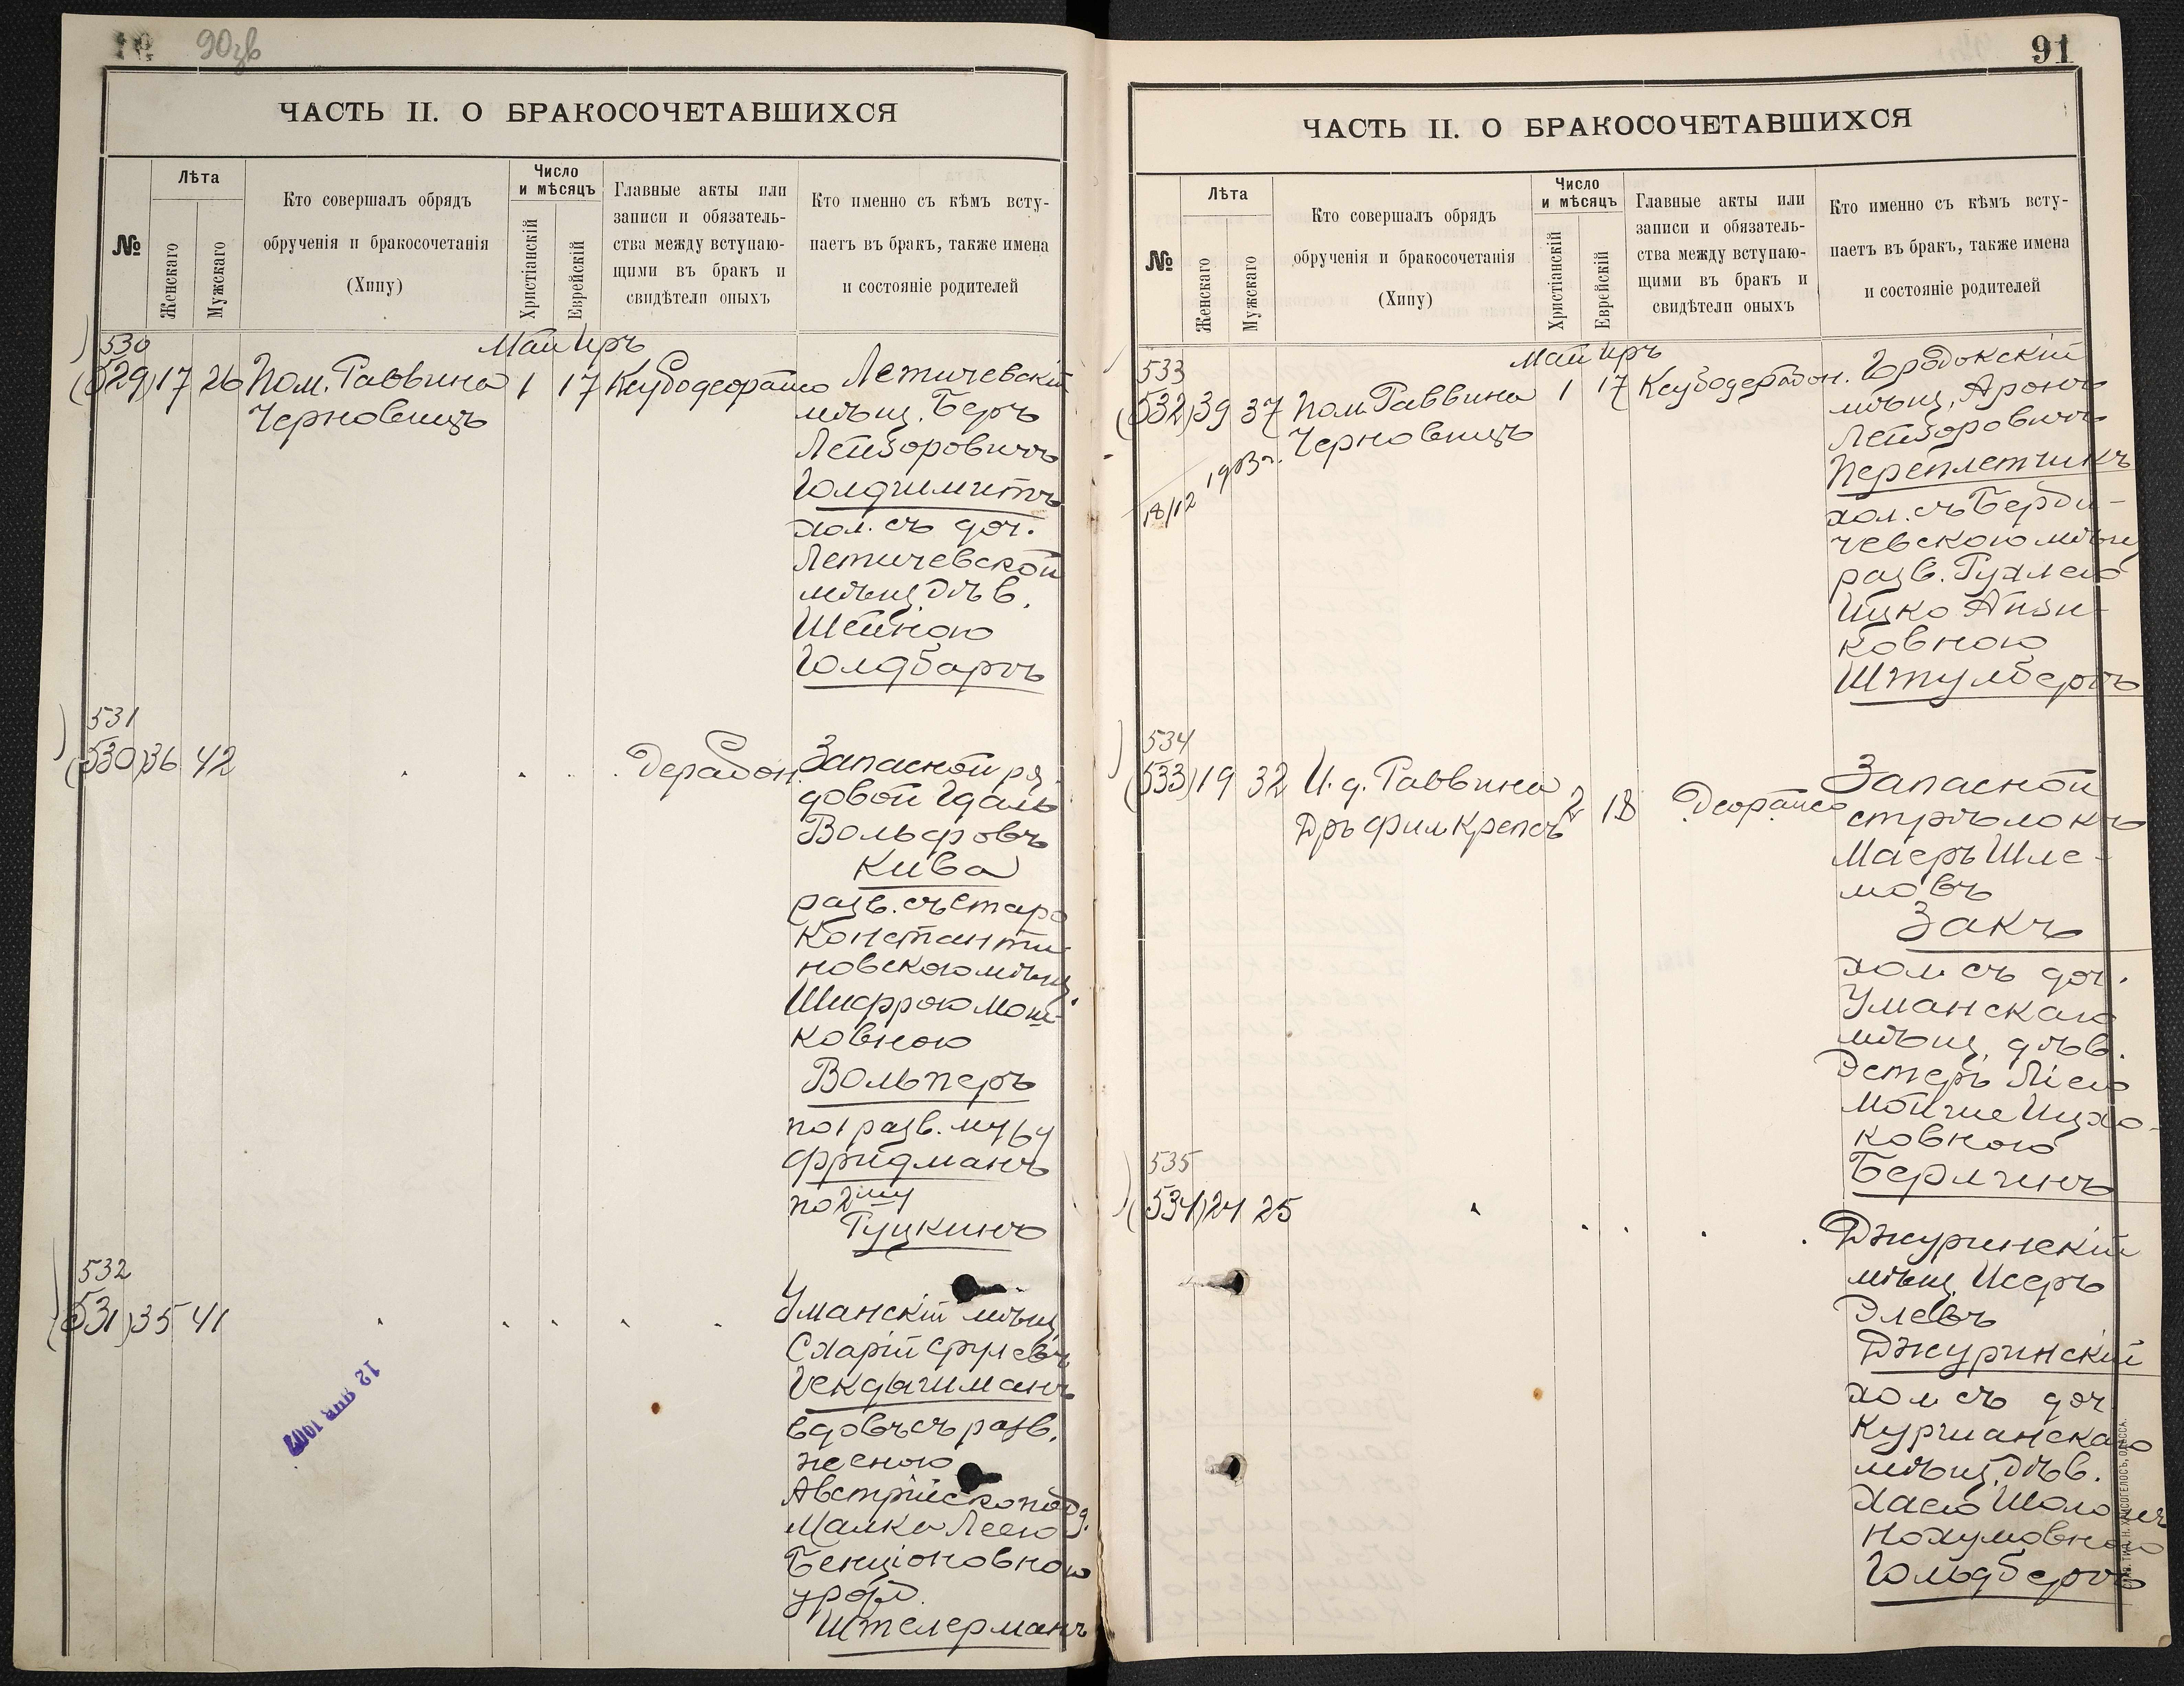 90 зв
ЧАСТЬ II. О БРАКОСОЧЕТАВШИХСЯ
№
Лѣта
Женскаго
Мужскаго
Кто совершалъ обрядъ
обрученія и бракосочетанія
(Хипу)
Число
и мѣсяцъ
Христіанскій
Еврейскій
Главные акты или
записи и обязатель-
ства между вступаю-
щими въ бракъ и
свидѣтели оныхъ
Кто именно съ кѣмъ всту-
паетъ въ бракъ, также имена
и состояніе родителей
Май Иръ
530
(529) 17 26 Пом. Раввина 1 17
Черновицъ
Летичевскій
мѣщ. Беръ
Лейзоровичъ
Голдшмитъ
хол. съ доч.
Летичевской
мѣщ. дѣв.
Шейною
Голдбаргъ
531
(530) 36 42
Запасной ря
довой Идаль
Вольфовъ
Кива
разв. съ Старо
Константи
новскою мѣщ.
Шифрою Мош-
ковною
Вольперъ
по 1 разв. мужу
Фридманъ
по 2му
Гуцкинъ
532
(531) 35 41
Уманскій мѣщ.
Схарій Срулевъ
вдовъ съ разв.
женою
Австрійскоподд.
Малка Леею
Бенціоновною
урожд.
Штелерманъ
91
ЧАСТЬ II. О БРАКОСОЧЕТАВШИХСЯ
№
Лѣта
Женскаго
Мужскаго
Кто совершалъ обрядъ
обрученія и бракосочетанія
(Хипу)
Число
и мѣсяцъ
Христіанскій
Еврейскій
Главные акты или
записи и обязатель-
ства между вступаю-
щими въ бракъ и
свидѣтели оныхъ
Кто именно съ кѣмъ всту-
паетъ въ бракъ, также имена
и состояніе родителей
Май Иръ
533
(532) 39 37 Пом. Раввина 1 17
Черновицъ
18/12 1903 г.
Городокскій
мѣщ. Аронъ
Лейзоровичъ
Переплетчикъ
хол. съ Берди-
чевскою мѣщ.
разв. Рухлею
Ицко Айзи-
ковною
Штулбергъ
534
(533) 19 32 И. д. Раввина 2 18
Дръ Фил. Крепсъ
Запасной
стрѣлокъ
Маеръ Шле-
мовъ
Закъ
хол. съ доч.
Уманскаго
мѣщ. дѣв.
Эстеръ Ліею
Мойше Ицхо-
ковною
Берлинъ
535
(534) 24 25
Джуринскій
мѣщ. Исеръ
Элевъ
Джуринскій
хол. съ доч.
мѣщ. дѣв.
Хаею Шоломъ
Нохумовною
Гольдбергъ